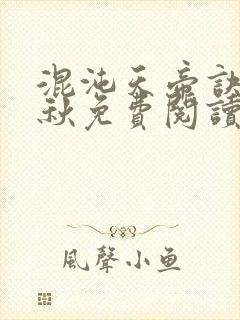 混沌天帝訣
秋免費閱讀
風聲小鱼